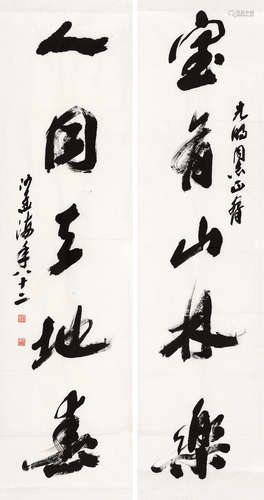 光明同志正
室有山林樂
人同天地春
沙孟海年八十二